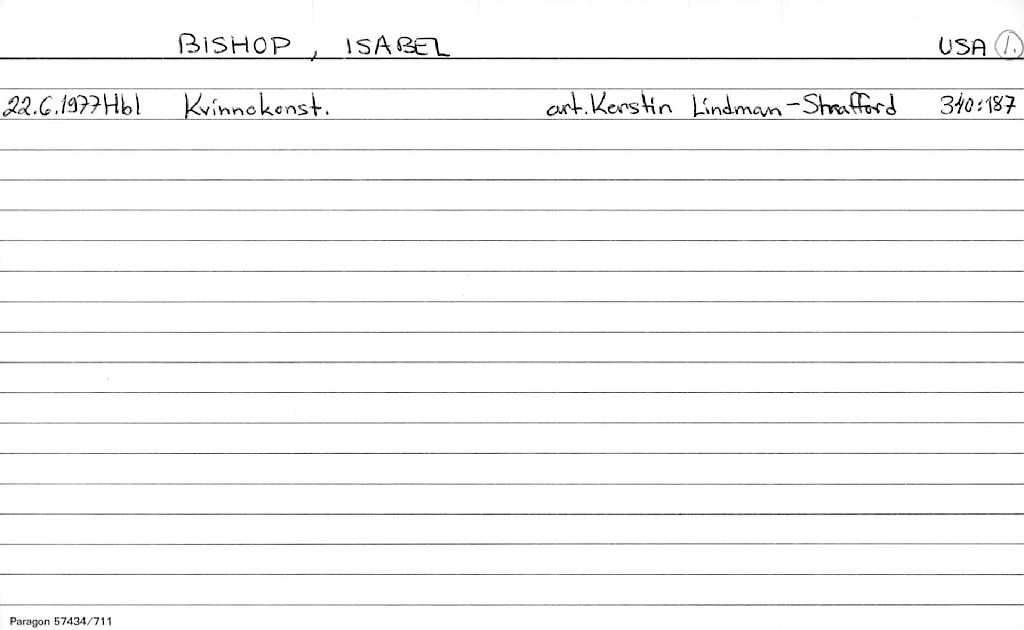 BISHOP, ISABEL USA 1.
22.6.1977 Hbl Kvinnokonst. art. Kerstin Lindman-Strafford 340:187
Paragon 57434/711